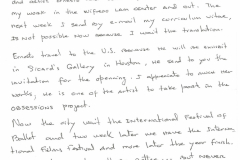 my work in the Wifredo Lam center and out. The
next week I send by e-mail my curriculum vitae,
is not possible now because I wait the translation.
Emails travel to the U.S. because he will be exhibit
in Sicardi's Gallery in Houston, we send to you the
invitation for the opening. I appreciate to aware her
works, she is one of the artist to take part in the
OBSESSIONS project.
Now the city visit the International Festival of
Ballet and two week later we have the Interna
tional Films Festival and more later the year finish.